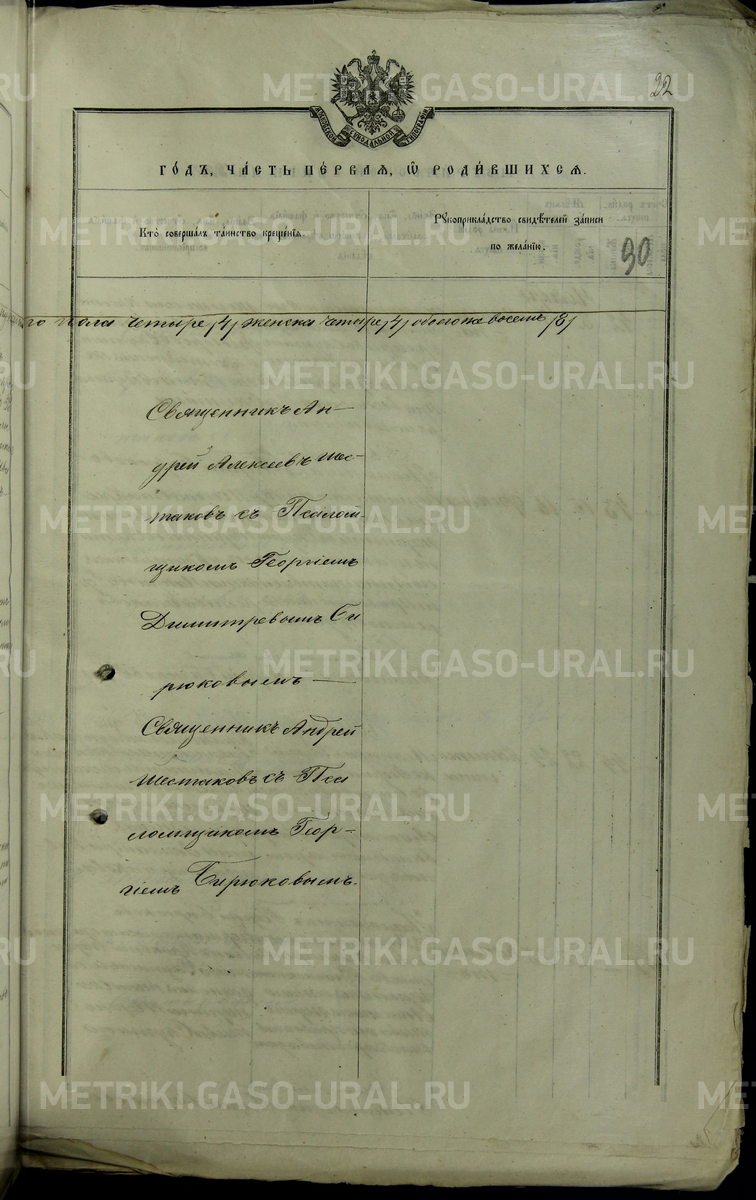 22
МОСКОВСКОЙ СѴНОДАЛЬНОЙ ТИПОГРАФІИ
ГОДЪ, ЧАСТЬ ПЕРВАЯ, Ѿ РОДИВШИХСЯ.
Кто совершалъ таинство крещенія.
Рꙋкоприкладство свидѣтелей записи
по желанію.
90
го пола четыре /4/ женска четыре /4/ обоего пола восемь /8/
Священникъ Ан-
дрей Алексеевъ Шес-
таковъ съ Псалом-
щикомъ Георгіемъ
Димитревымъ Би
рюковымъ —
Священникъ Андрей
Шестаковъ съ Пса
ломщикомъ Геор-
гіемъ Бирюковымъ.
METRIKI.GASO-URAL.RU